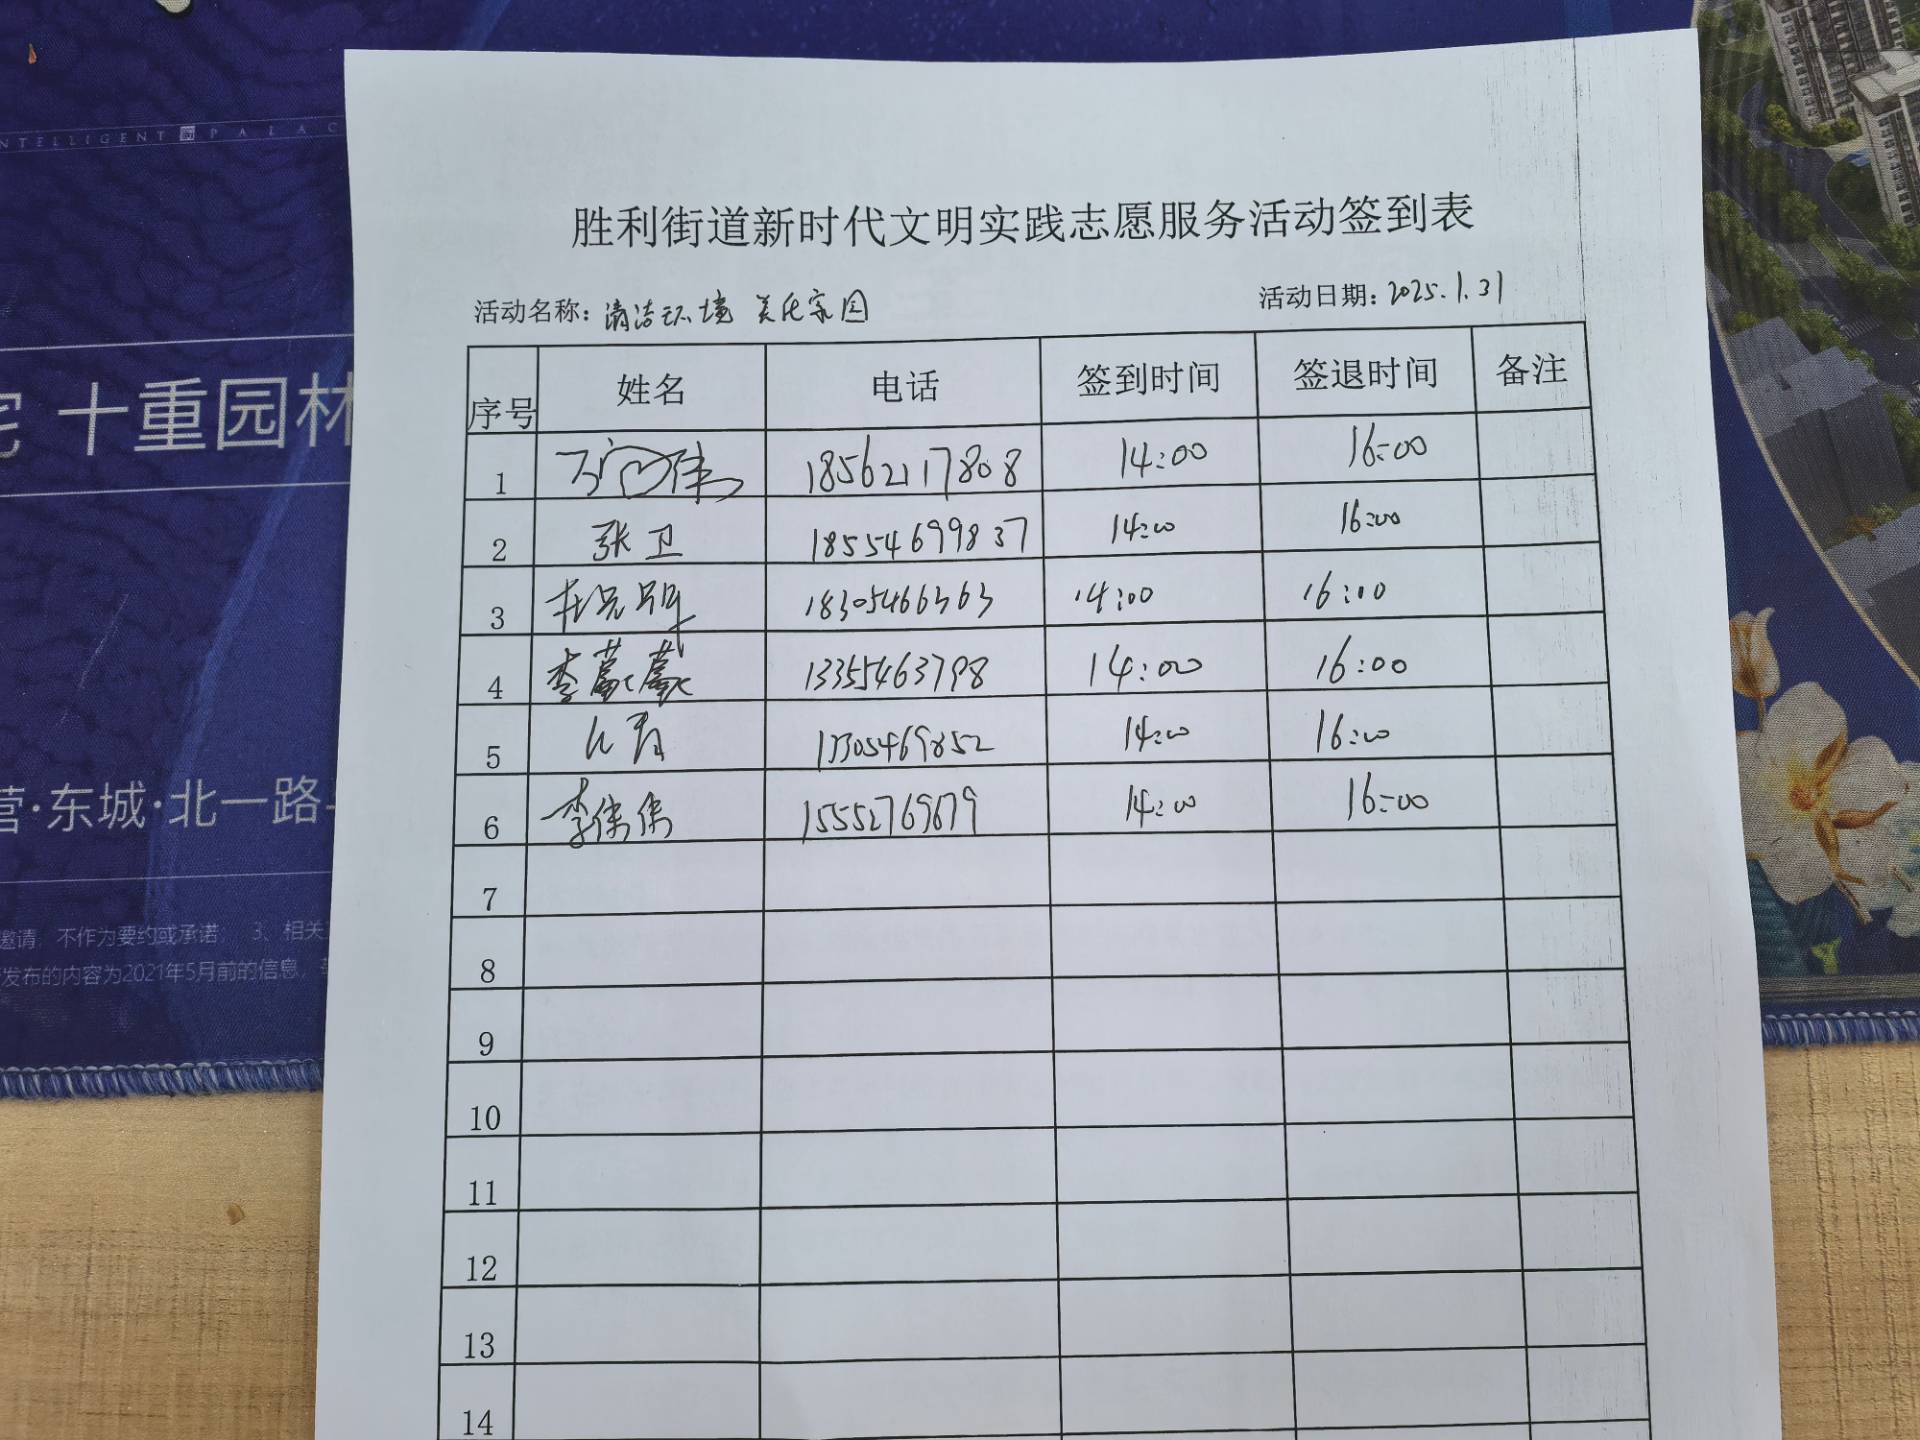 INTELLIGENT PALAC
宅 十重园林
营·东城·北一路
邀请，不作为要约或承诺； 3、相关
发布的内容为2021年5月前的信息，
胜利街道新时代文明实践志愿服务活动签到表
活动名称：清洁环境 美化家园 活动日期：2025.1.31
序号 姓名 电话 签到时间 签退时间 备注
1 18562117808 14:00 16:00
2 张卫 18554699837 14:00 16:00
3 18305466363 14:00 16:00
4 李葳葳 13355463798 14:00 16:00
5 13305469852 14:00 16:00
6 李倩倩 15552769679 14:00 16:00
7
8
9
10
11
12
13
14